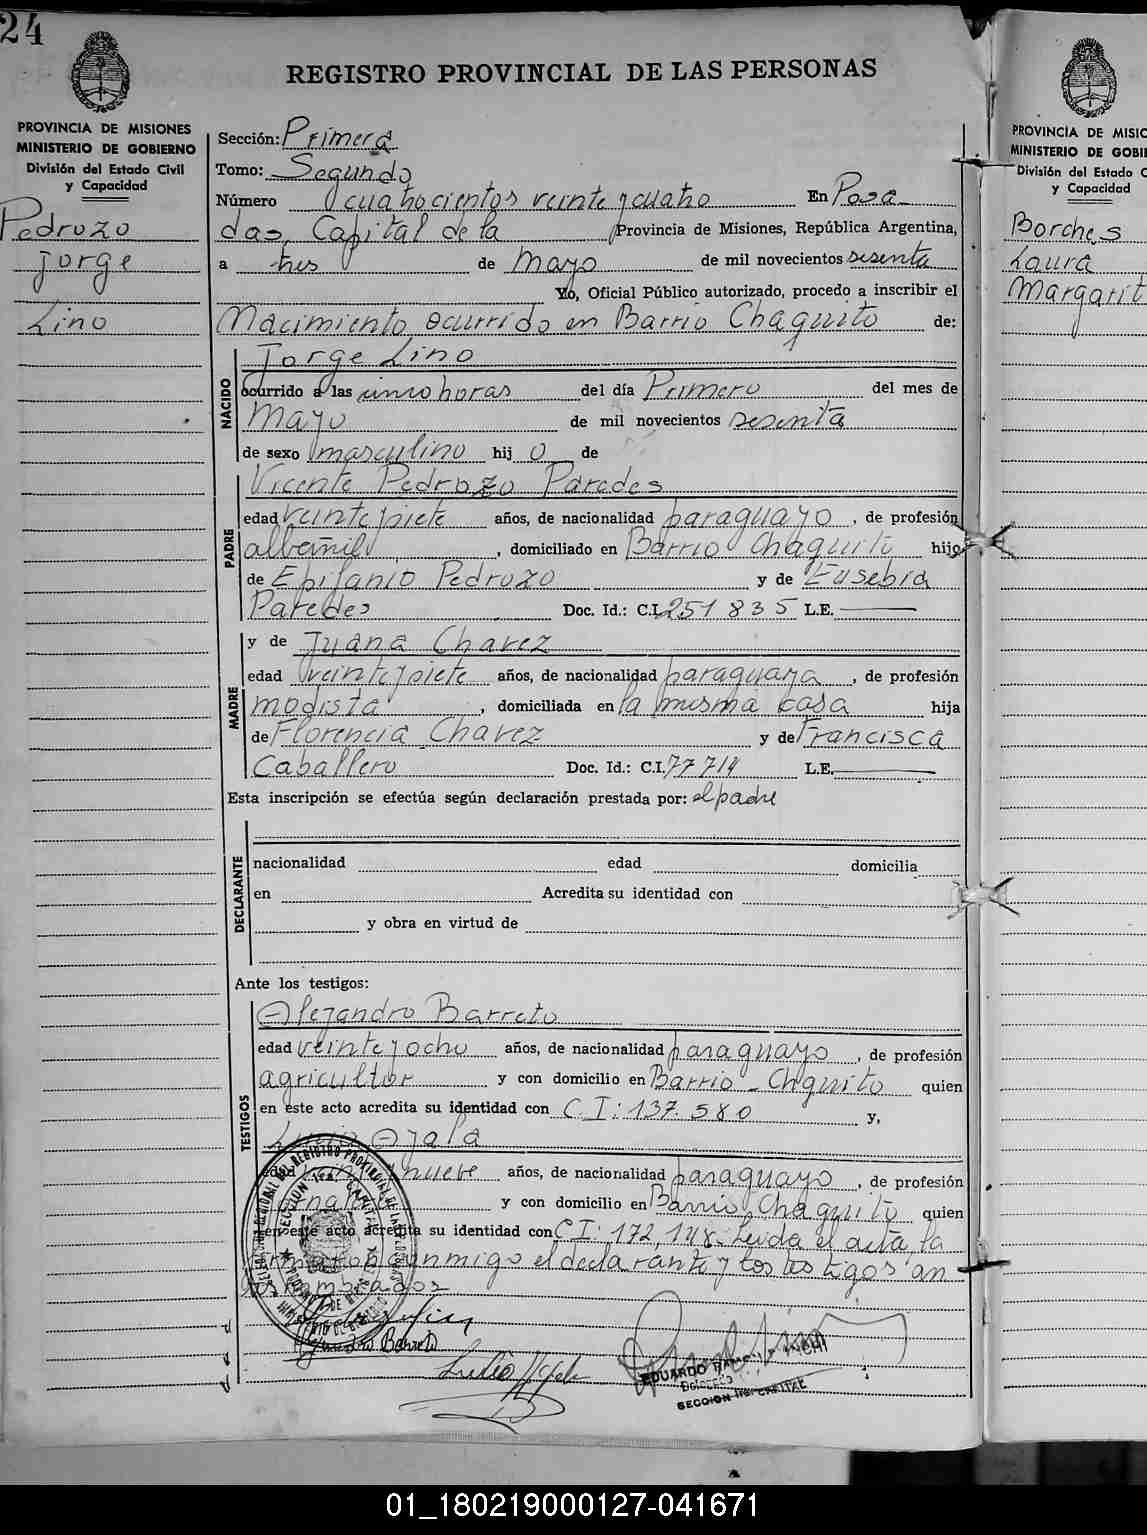 24
REGISTRO PROVINCIAL DE LAS PERSONAS
PROVINCIA DE MISIONES
MINISTERIO DE GOBIERNO
División del Estado Civil
y Capacidad
Pedrozo
Jorge
Lino
Sección: Primera
Tomo: Segundo
Número cuatrocientos veinte y cuatro En Posa
das, Capital de la Provincia de Misiones, República Argentina,
a tres de Mayo de mil novecientos sesenta
Yo, Oficial Público autorizado, procedo a inscribir el
Nacimiento ocurrido en Barrio Chaquito de:
NACIDO
Jorge Lino
ocurrido a las cinco horas del día Primero del mes de
Mayo de mil novecientos sesenta
de sexo masculino hij o de
PADRE
Vicente Pedrozo Paredes
edad veinte y siete años, de nacionalidad paraguayo, de profesión
albañil, domiciliado en Barrio Chaquito hijo
de Epifanio Pedrozo y de Eusebia
Paredes Doc. Id.: C.I. 251 835 L.E.
MADRE
y de Juana Chavez
edad veinte y siete años, de nacionalidad paraguaya, de profesión
modista, domiciliada en la misma casa hija
de Florencia Chavez y de Francisca
Caballero Doc. Id.: C.I. 77 714 L.E.
Esta inscripción se efectúa según declaración prestada por: el padre
DECLARANTE
nacionalidad edad domicilia
en Acredita su identidad con
y obra en virtud de
Ante los testigos:
TESTIGOS
Alejandro Barreto
edad veinte y ocho años, de nacionalidad paraguayo, de profesión
agricultor y con domicilio en Barrio - Chquito quien
en este acto acredita su identidad con C.I: 137.580 y,
Ayala
edad nueve años, de nacionalidad paraguayo, de profesión
y con domicilio en Barrio Chaquito quien
en este acto acredita su identidad con C.I: 172,148. Leída el acta, la
conmigo el declarante y los testigos an
tes nombrados
Alejandro Barreto
EDUARDO RAMON
Delegado
SECCION 1ra. CAPITAL
PROVINCIA DE MISIC
MINISTERIO DE GOBI
División del Estado C
y Capacidad
Borches
Laura
Margarit
01_180219000127-041671